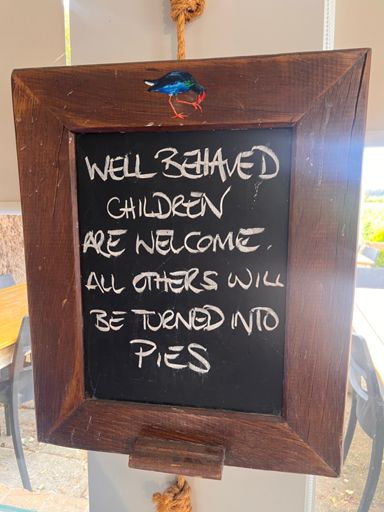 WELL BEHAVED
CHILDREN
ARE WELCOME.
ALL OTHERS WILL
BE TURNED INTO
PIES